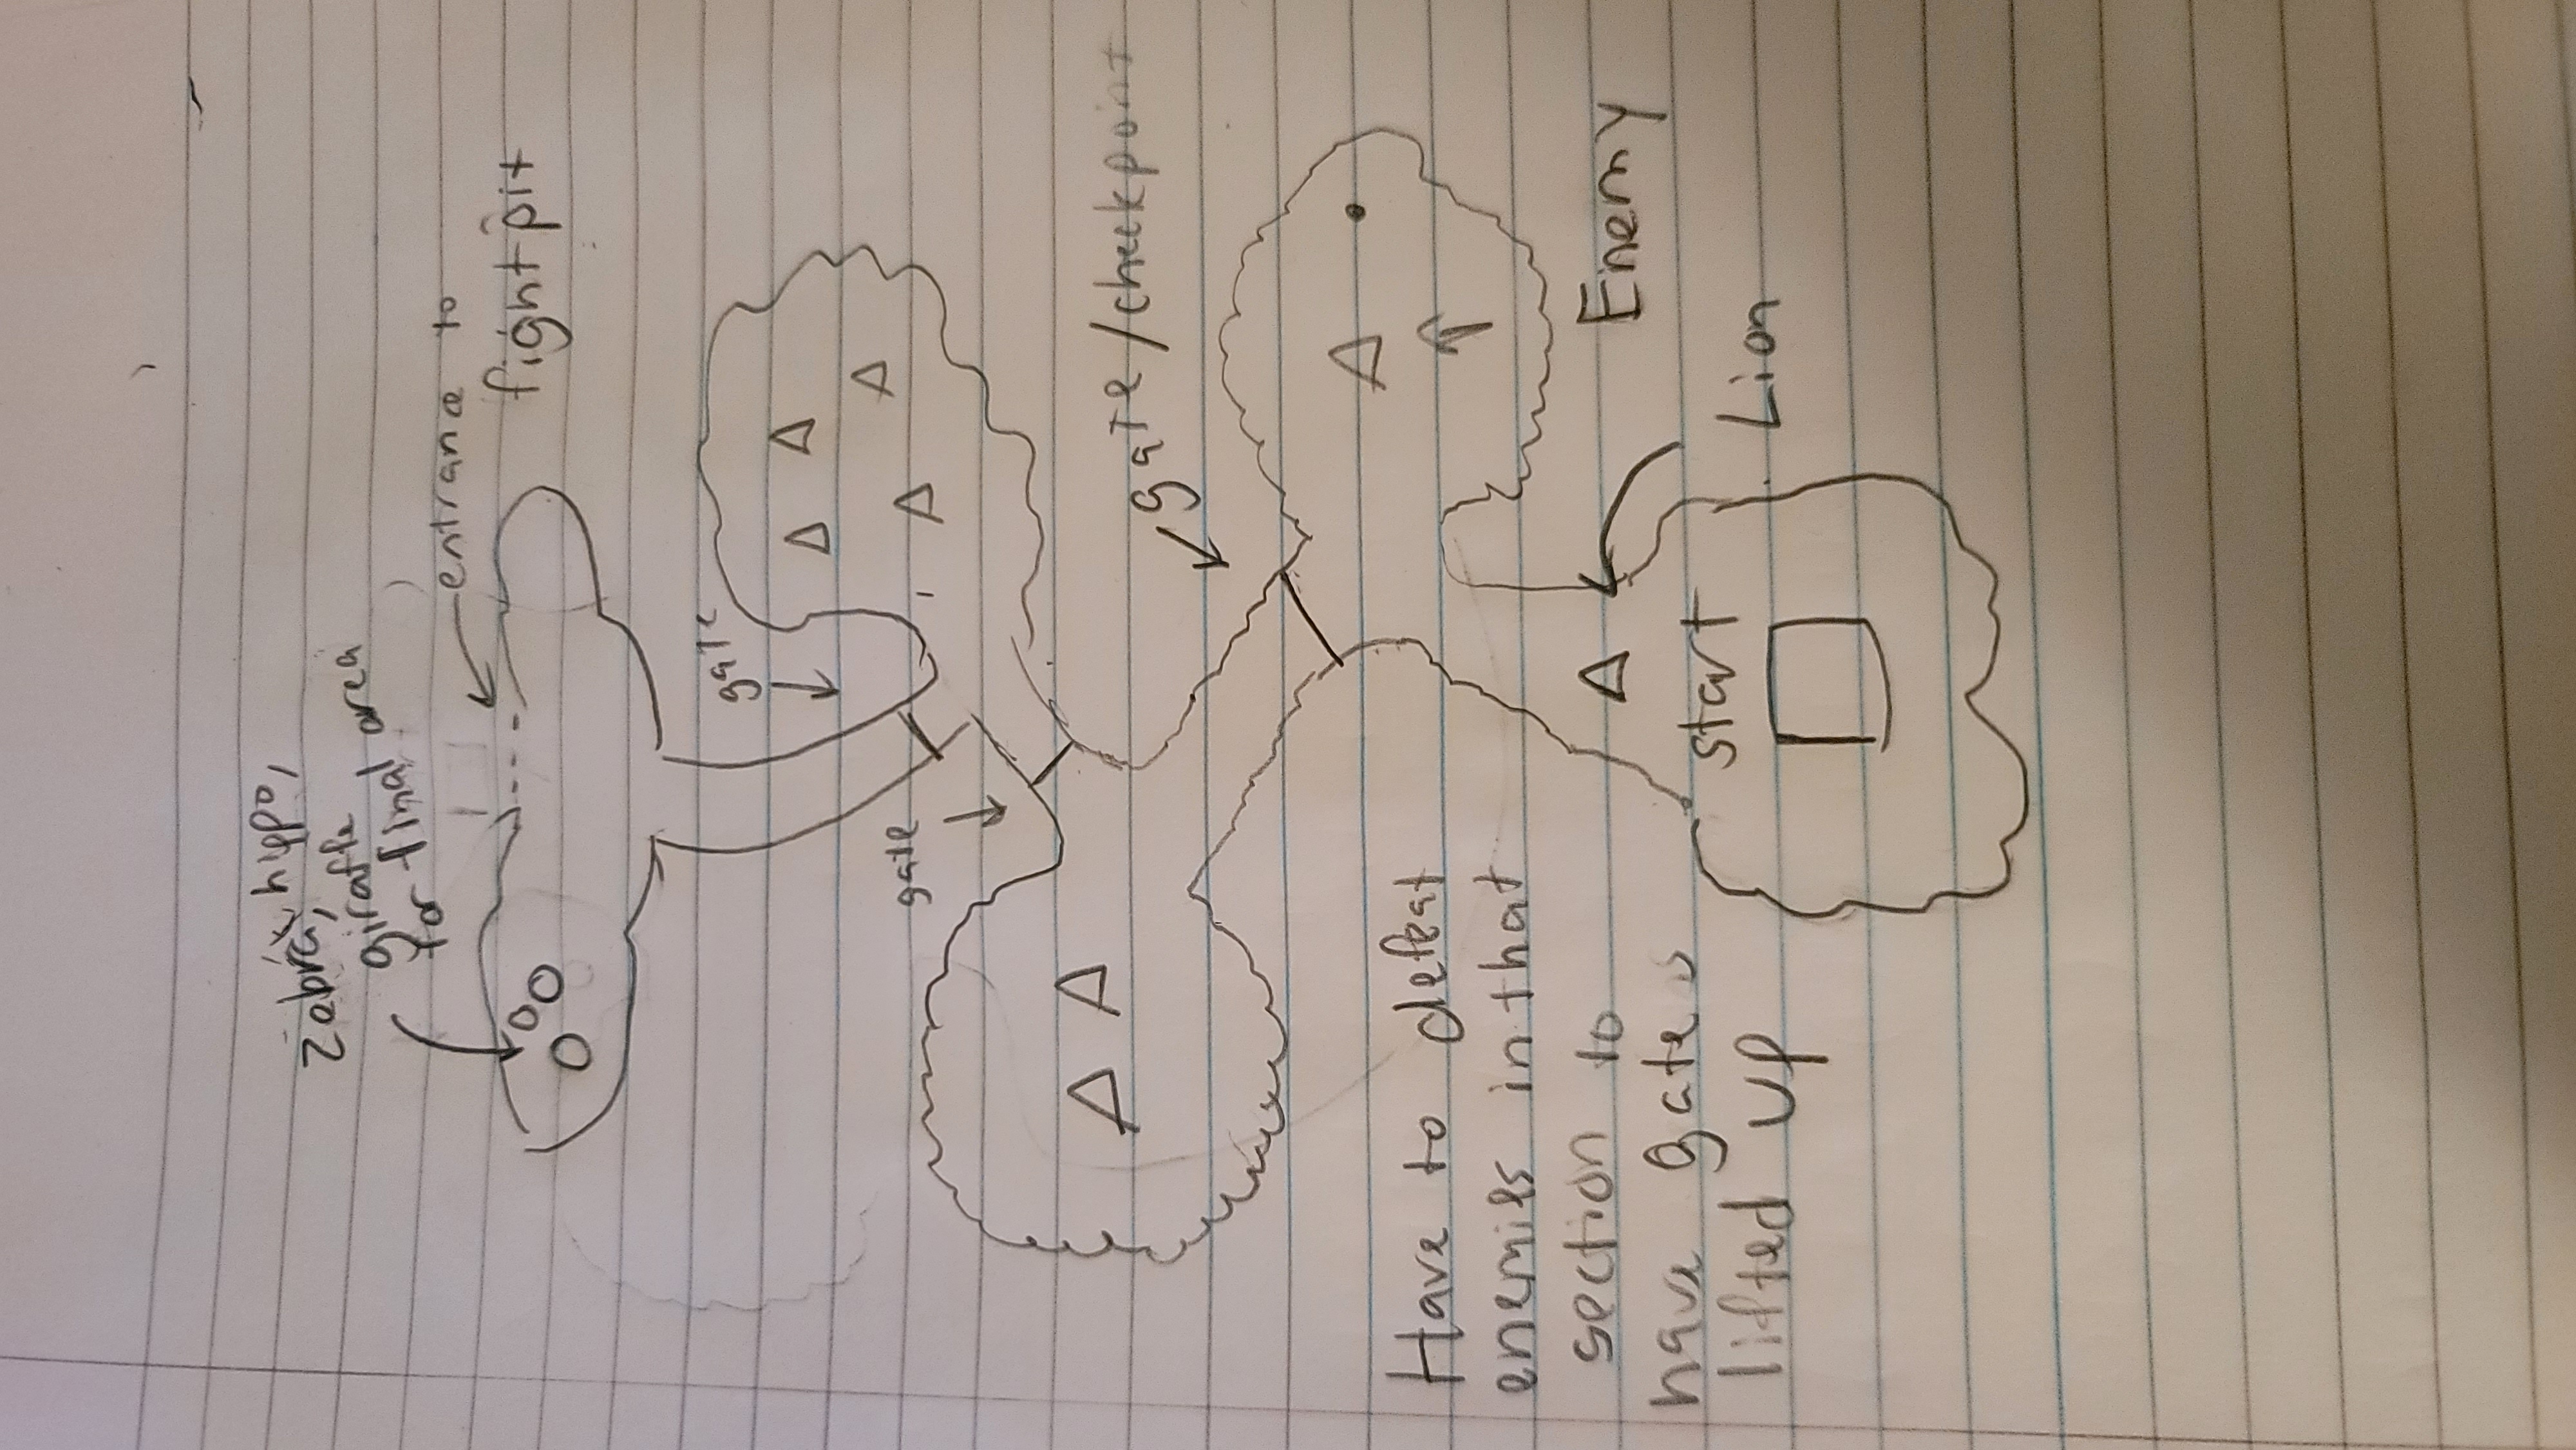 Zebra, hippo,
giraffe
for final area
entrance to
fight pit
gate
gate
gate/checkpoint
Have to defeat
enemies in that
section to
have gates
lifted up
Enemy
start
Lion